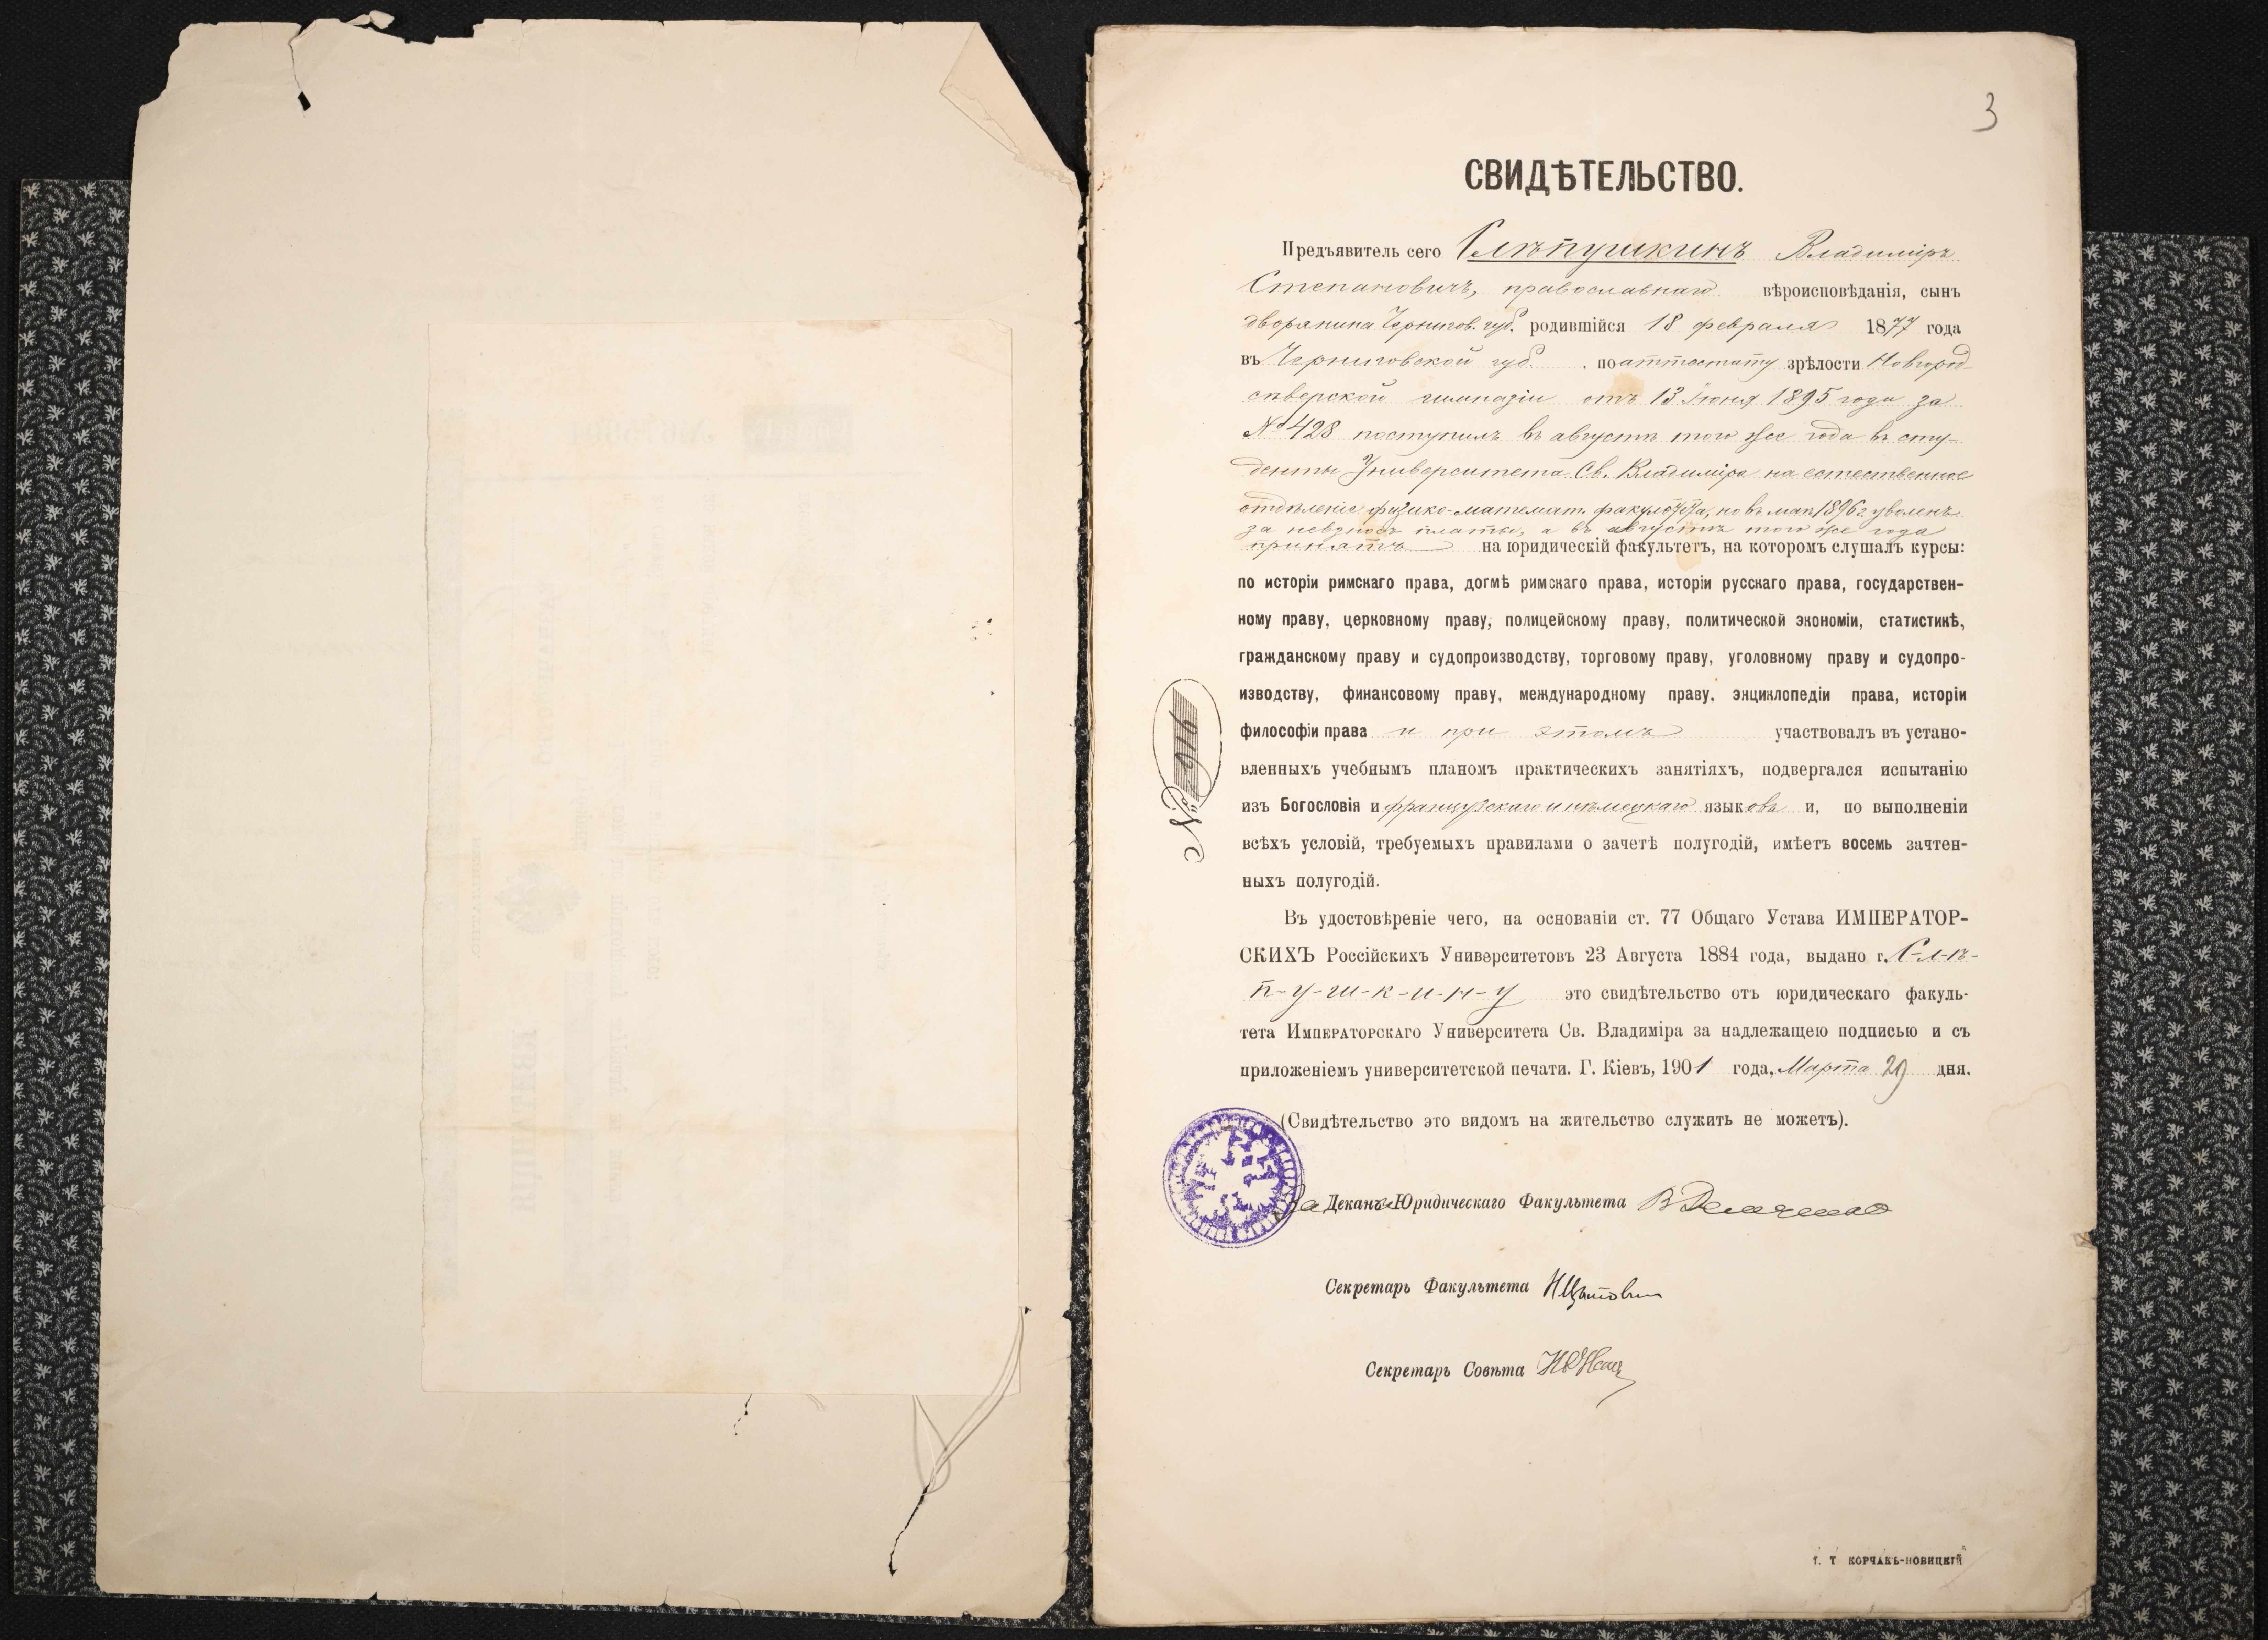 3
СВИДѢТЕЛЬСТВО.
Предъявитель сего Слѣпушкинъ Владиміръ
Степановичъ, православнаго вѣроисповѣданія, сынъ
дворянина Чернигов. губ. родившійся 18 февраля 1877 года
въ Черниговской губ. , по аттестату зрѣлости Новгород-
сѣверской гимназіи отъ 13 Іюня 1895 года за
№ 428 поступилъ въ августѣ того же года въ сту-
денты Университета Св. Владиміра на естественное
отдѣленіе физико-математ. факультета, но въ маѣ 1896 г. уволенъ
за невзносъ платы, а въ августѣ того же года
принятъ на юридическій факультетъ, на которомъ слушалъ курсы:
по исторіи римскаго права, догмѣ римскаго права, исторіи русскаго права, государствен-
ному праву, церковному праву, полицейскому праву, политической экономіи, статистикѣ,
гражданскому праву и судопроизводству, торговому праву, уголовному праву и судопро-
изводству, финансовому праву, международному праву, энциклопедіи права, исторіи
философіи права и при этомъ участвовалъ въ устано-
вленныхъ учебнымъ планомъ практическихъ занятіяхъ, подвергался испытанію
изъ Богословія и французскаго и нѣмецкаго языковъ и, по выполненіи
всѣхъ условій, требуемыхъ правилами о зачетѣ полугодій, имѣетъ восемь зачтен-
ныхъ полугодій.
№ 916
Въ удостовѣреніе чего, на основаніи ст. 77 Общаго Устава ИМПЕРАТОР-
СКИХЪ Россійскихъ Университетовъ 23 Августа 1884 года, выдано г. С-л-ѣ-
п-у-ш-к-и-н-у это свидѣтельство отъ юридическаго факуль-
тета Императорскаго Университета Св. Владиміра за надлежащею подписью и съ
приложеніемъ университетской печати. Г. Кіевъ, 1901 года, Марта 29 дня.
(Свидѣтельство это видомъ на жительство служить не можетъ).
За Декана Юридическаго Факультета
Секретарь Факультета Н Цытович
Секретарь Совѣта
Т. Т КОРЧАКЪ-НОВИЦКІЙ